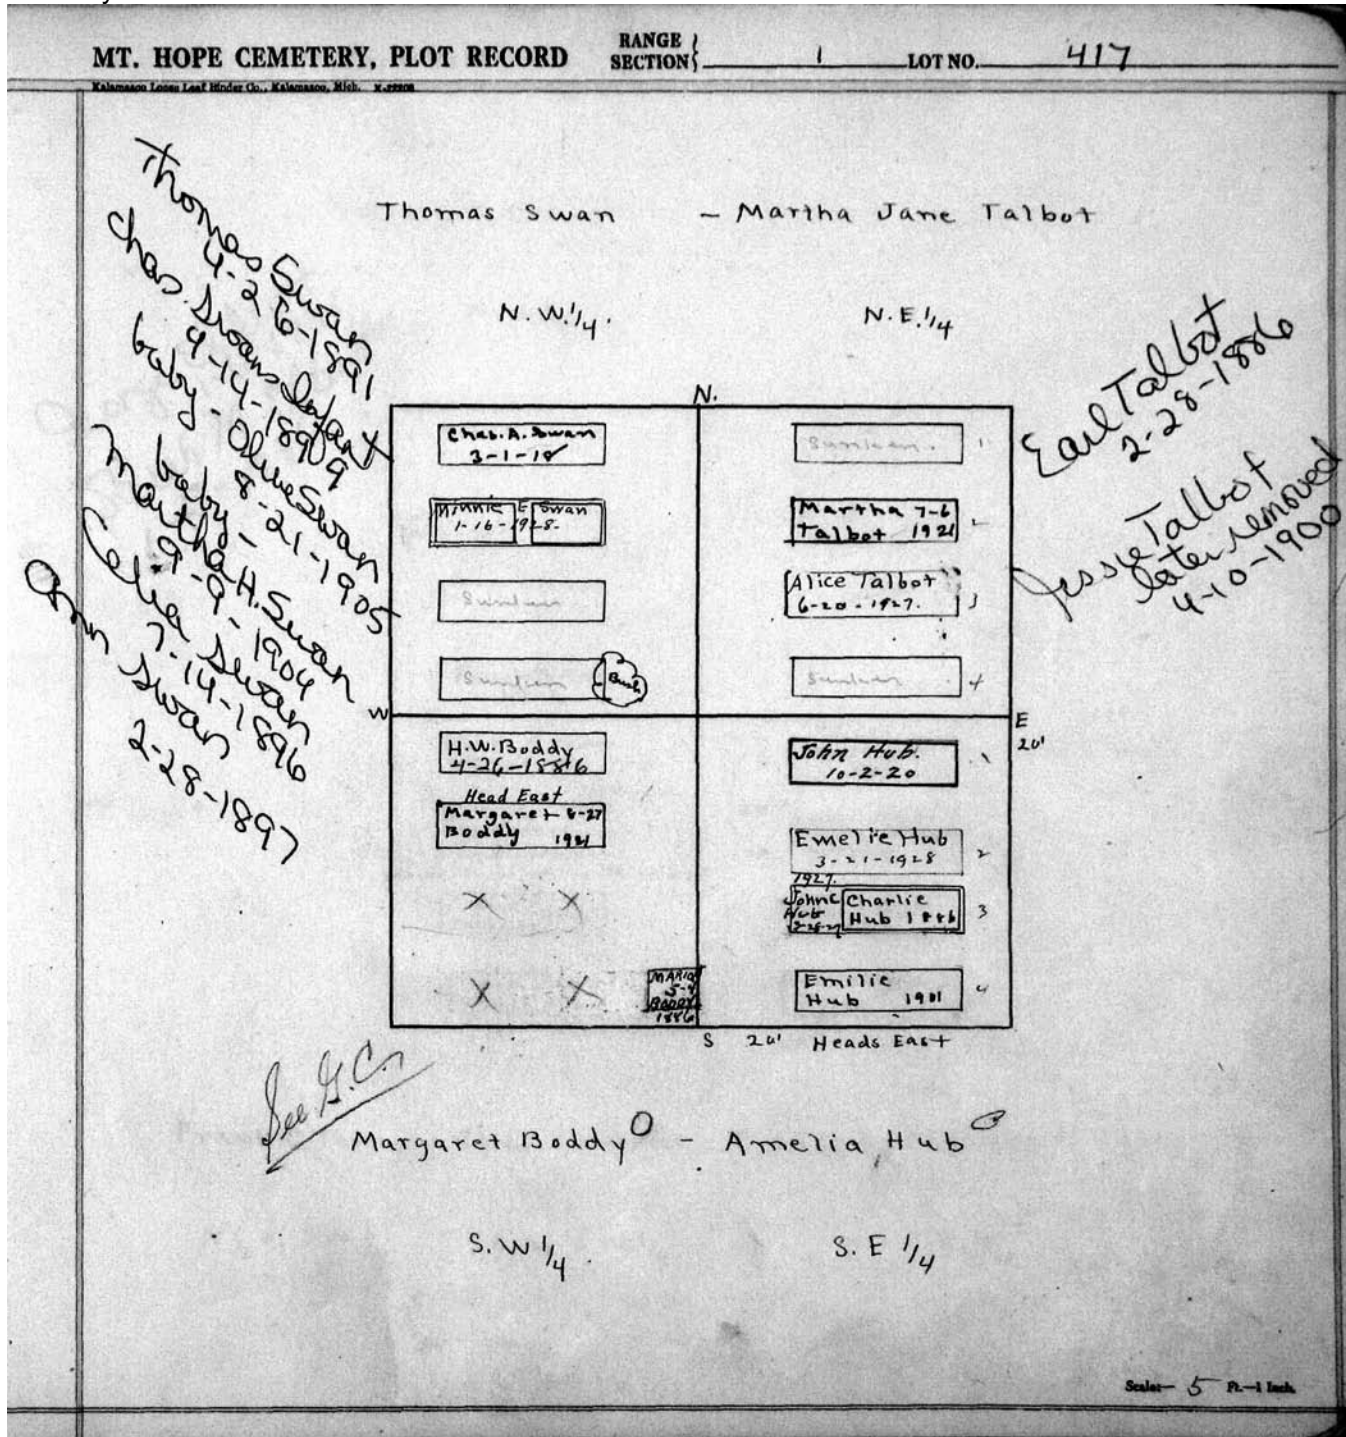 MT. HOPE CEMETERY, PLOT RECORD RANGE SECTION 1 LOT NO. 417
Kalamazoo Loose Leaf Binder Co., Kalamazoo, Mich.
Thomas Swan - Martha Jane Talbot
N.W. 1/4. N.E. 1/4
Thomas Swan
4-26-1891
Chas. Swans Infant
9-14-1899
baby - Olive Swan
8-21-1905
baby -
Martha H. Swan
9-9-1904
Celia Swan
7-14-1896
Ann Swan
2-28-1897
Earl Talbot
2-28-1886
Jessie Talbot
later removed
4-10-1900
N.
Chas. A. Swan
3-1-18
Minnie E Swan
1-16-1928.
Sunken
Sunken
Bush
Sunken. 1
Martha 7-6
Talbot 1921
2
Alice Talbot
6-20-1927.
3
Sunken 4
W
E
20'
H.W. Boddy
4-26-1886
Head East
Margaret 8-27
Boddy 1921
X X
X X
MARIA
5-9
BODDY
1886
John Hub.
10-2-20
1
Emelie Hub
3-21-1928
2
1927.
John C
Hub
Charlie
Hub 1886
3
Emilie
Hub 1901
4
S 20' Heads East
See G.C.
Margaret Boddy - Amelia Hub
S. W 1/4. S. E 1/4
Scale— 5 Ft.—1 Inch.